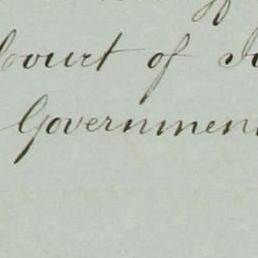 Court of
Governmen